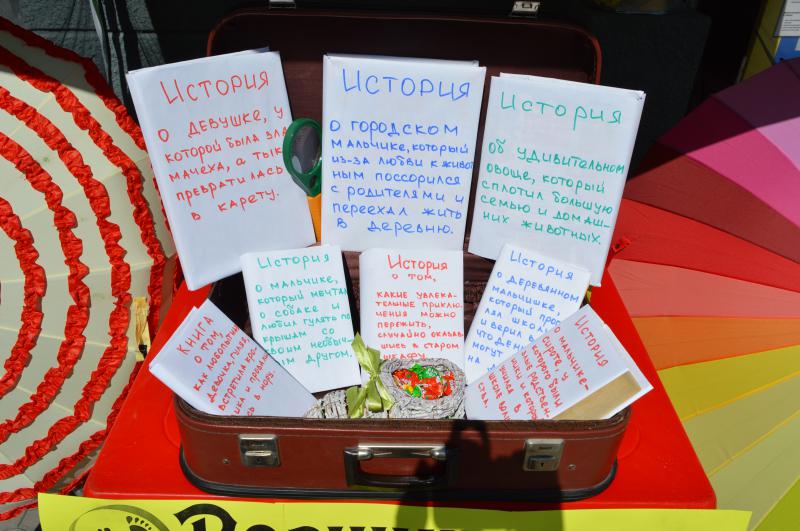 История
о девушке, у
которой была
мачеха, а
превратилась
в карету.
История
о городском
мальчике, который
из-за любви к
ным поссорился
с родителями и
переехал жить
в деревню.
История
об удивительном
овоще, который
сплотил большую
семью и домаш-
них животных.
История
о мальчике,
который
о собаке и
любил гулять по
крышам со
своим
другом.
История
о том,
какие увлека-
тельные приклю-
чения можно
пережить,
случайно
шись в старом
шкафу
История
о деревянном
мальчишке,
который
и верил в
что
могут
Книга
о том,
как
девочка,
встретила
и
в нору.
История
о мальчике-
сироте, у
которого были
и
в